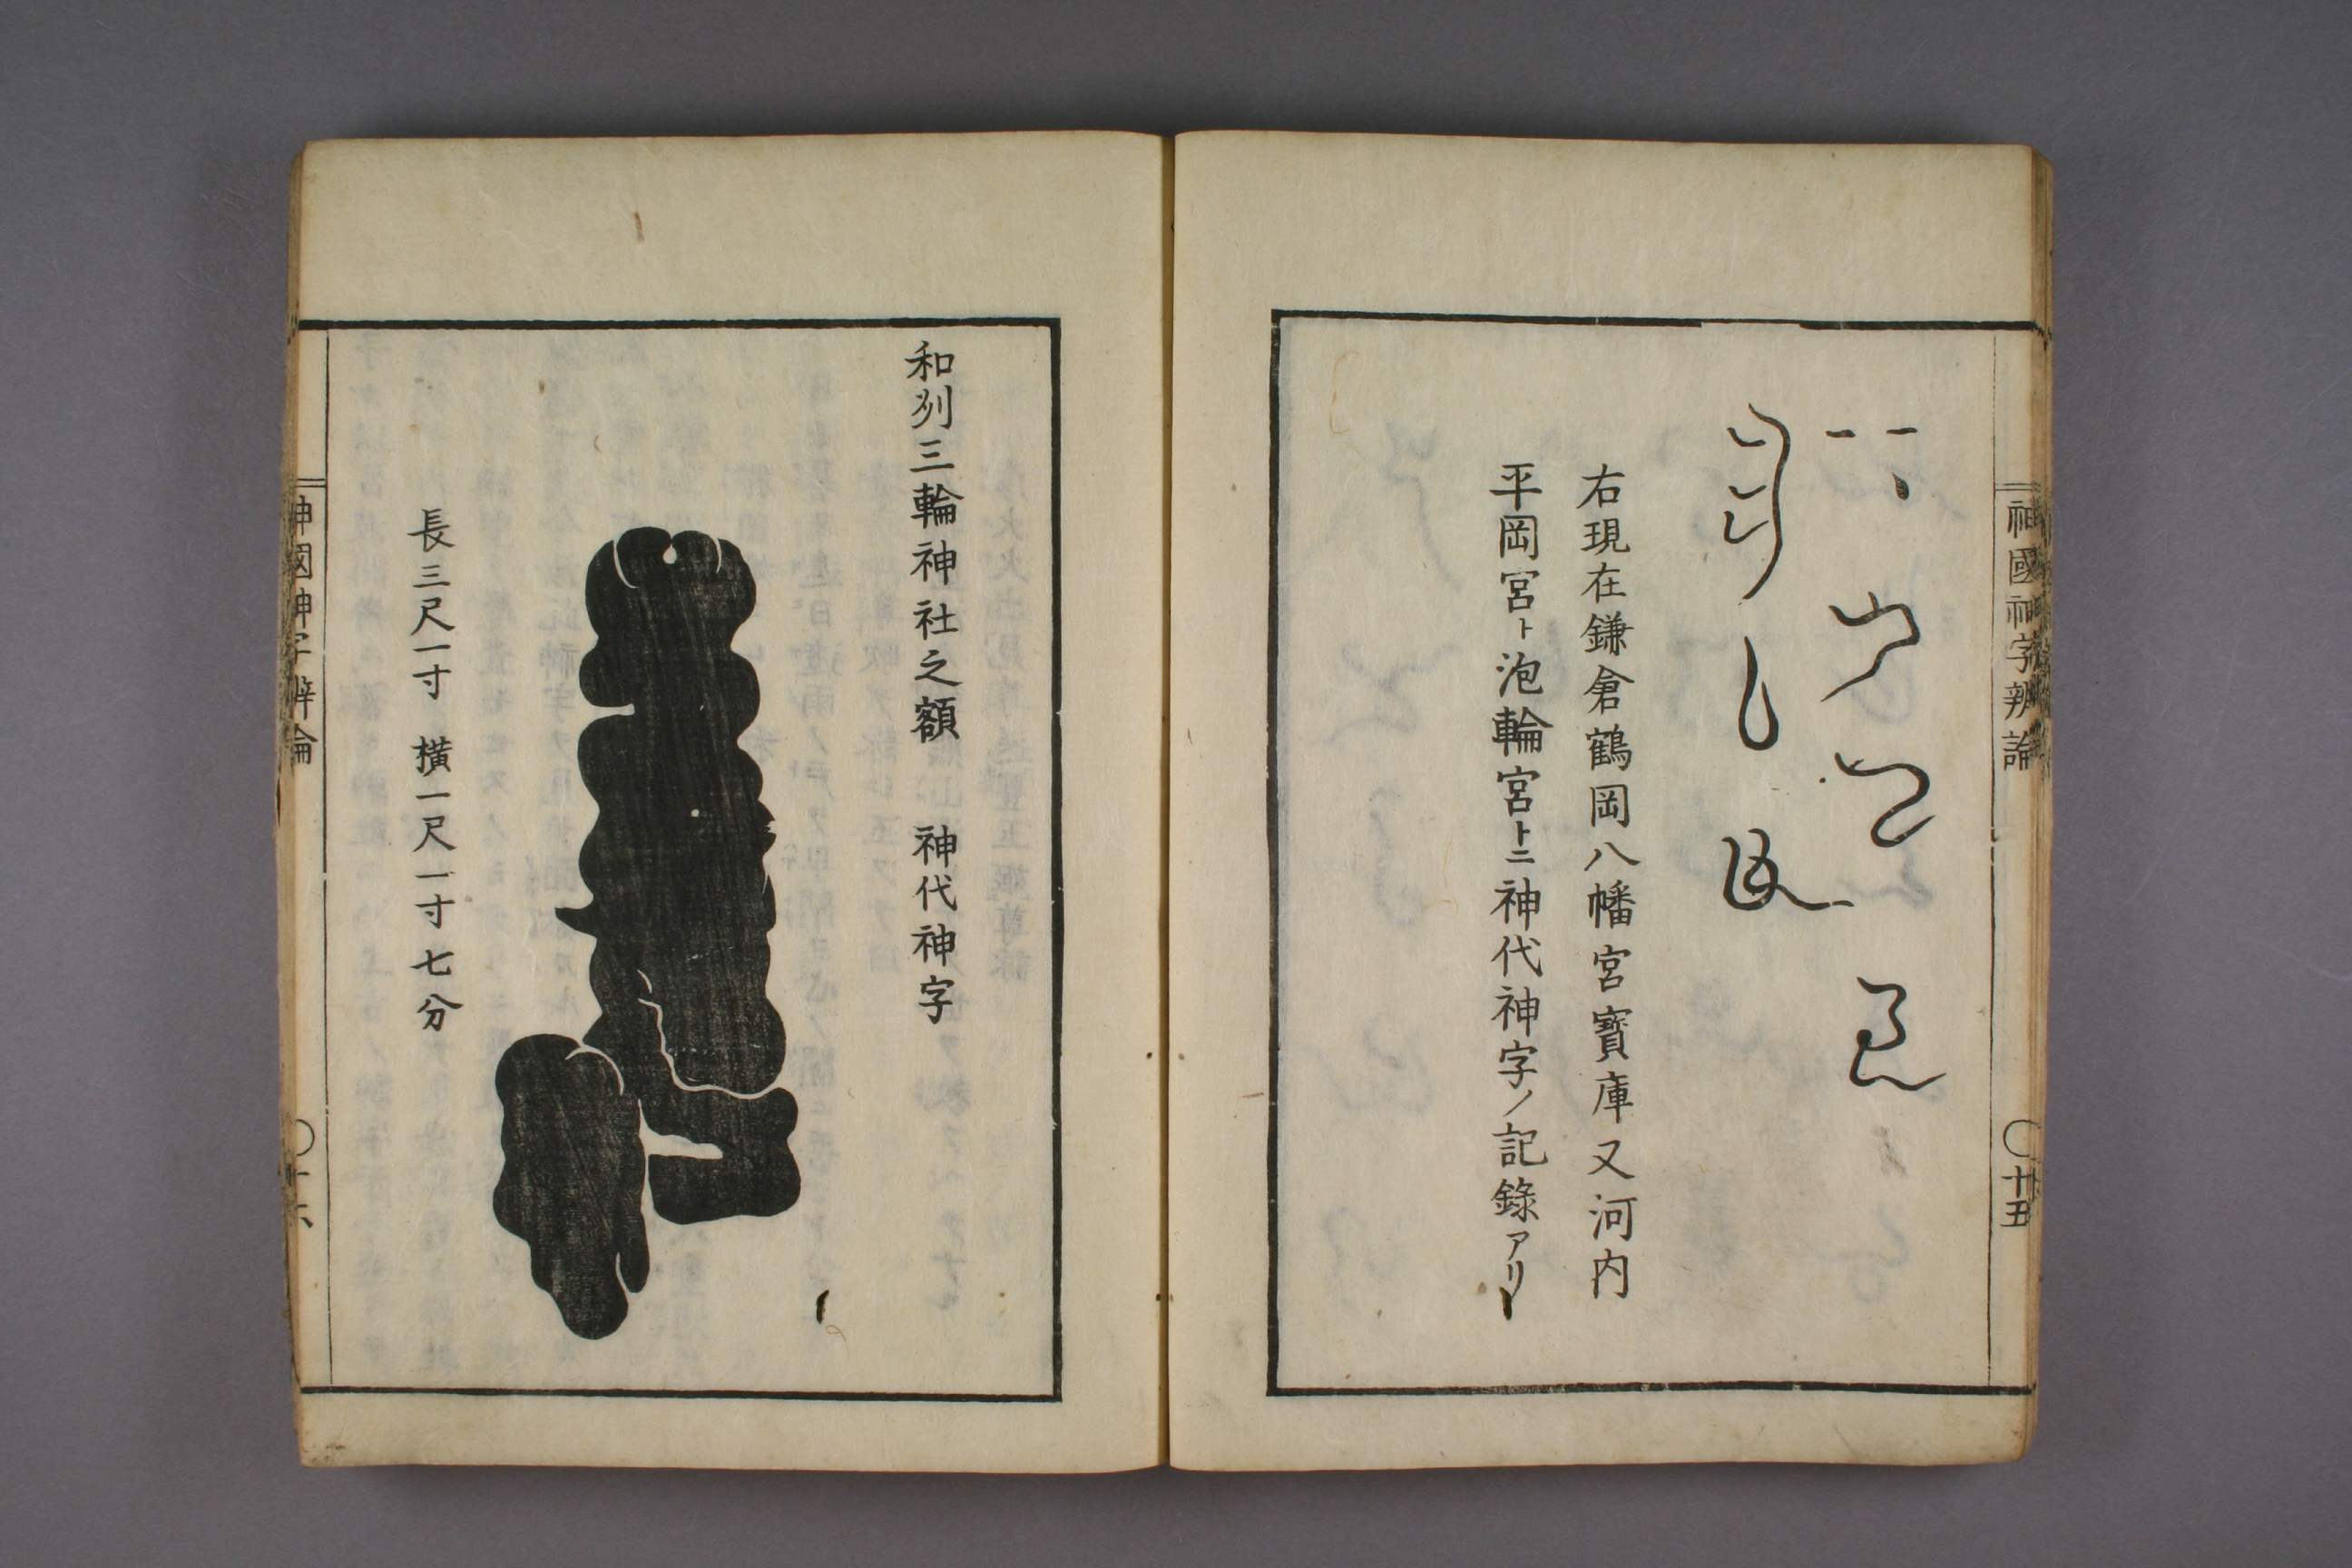 神國神字辨論
〇十五
右現在鎌倉鶴岡八幡宮寶庫又河内
平岡宮ト泡輪宮トニ神代神字ノ記錄アリ
和刕三輪神社之額 神代神字
長三尺一寸 橫一尺一寸七分
神國神字辨論
〇十六